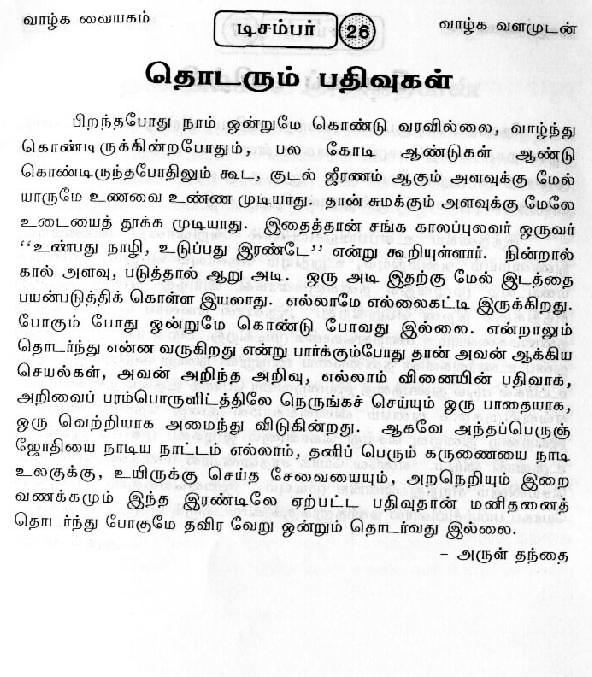 வாழ்க வையகம்
டிசம்பர் 26
வாழ்க வளமுடன்
தொடரும் பதிவுகள்
பிறந்தபோது நாம் ஒன்றுமே கொண்டு வரவில்லை, வாழ்ந்து
கொண்டிருக்கின்றபோதும், பல கோடி ஆண்டுகள் ஆண்டு
கொண்டிருந்தபோதிலும் கூட, குடல் ஜீரணம் ஆகும் அளவுக்கு மேல்
யாருமே உணவை உண்ண முடியாது. தான் சுமக்கும் அளவுக்கு மேலே
உடையைத் தூக்க முடியாது. இதைத்தான் சங்க காலப்புலவர் ஒருவர்
“உண்பது நாழி, உடுப்பது இரண்டே” என்று கூறியுள்ளார். நின்றால்
கால் அளவு, படுத்தால் ஆறு அடி. ஒரு அடி இதற்கு மேல் இடத்தை
பயன்படுத்திக் கொள்ள இயலாது. எல்லாமே எல்லைகட்டி இருக்கிறது.
போகும் போது ஒன்றுமே கொண்டு போவது இல்லை. என்றாலும்
தொடர்ந்து என்ன வருகிறது என்று பார்க்கும்போது தான் அவன் ஆக்கிய
செயல்கள், அவன் அறிந்த அறிவு, எல்லாம் வினையின் பதிவாக,
அறிவைப் பரம்பொருளிடத்திலே நெருங்கச் செய்யும் ஒரு பாதையாக,
ஒரு வெற்றியாக அமைந்து விடுகின்றது. ஆகவே அந்தப்பெருஞ்
ஜோதியை நாடிய நாட்டம் எல்லாம், தனிப் பெரும் கருணையை நாடி
உலகுக்கு, உயிருக்கு செய்த சேவையையும், அறநெறியும் இறை
வணக்கமும் இந்த இரண்டிலே ஏற்பட்ட பதிவுதான் மனிதனைத்
தொடர்ந்து போகுமே தவிர வேறு ஒன்றும் தொடர்வது இல்லை.
– அருள் தந்தை